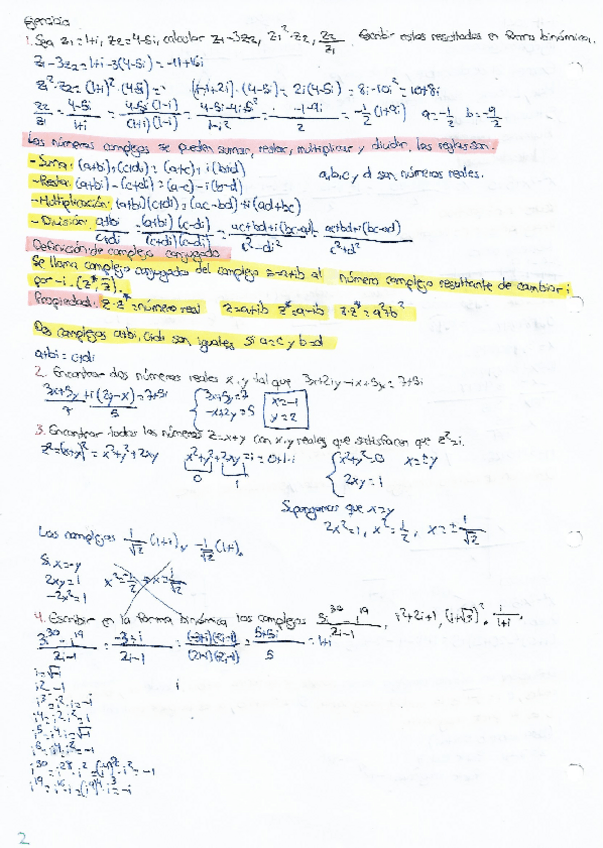 Ejercicio
1. Sea z₁=1+i, z₂=4-5i, calcular z₁-3z₂, z₁²·z₂, z₂/z₁. Escribir estos resultados en forma binómica.
z₁-3z₂=1+i-3(4-5i)=-11+16i
z₁²·z₂=(1+i)²·(4-5i)= (1-1+2i)·(4-5i)=2i(4-5i)=8i-10i²=10+8i
z₂/z₁ = (4-5i)/(1+i) = (4-5i)(1-i)/(1+i)(1-i) = /(1-i²) = (-1-9i)/2 = -1/2(1+9i) a=-1/2 b=-9/2
Los números complejos se pueden sumar, restar, multiplicar y dividir. Las reglas son:
- Suma: (a+bi)+(c+di)=(a+c)+i(b+d)
a,b,c y d son números reales.
- Resta: (a+bi)-(c+di)=(a-c)-i(b-d)
- Multiplicación: (a+bi)(c+di)=(ac-bd)+i(ad+bc)
- División: (a+bi)/(c+di) = (a+bi)(c-di)/(c+di)(c-di) = (ac+bd+i(bc-ad))/(c²-di²) = (ac+bd+i(bc-ad))/(c²+d²)
Definición de complejo conjugado
Se llama complejo conjugado del complejo z=a+ib al número complejo resultante de cambiar i
por -i.
Propiedad: z·z*=número real z=a+ib z*=a-ib z·z*=a²+b²
Dos complejos a+bi, c+di son iguales si a=c y b=d
a+bi=c+di
2. Encontrar dos números reales x,y tal que 3x+2iy-ix+5y=7+5i
3x+5y+i(2y-x)=7+5i
7 5
3x+5y=7
-x+2y=5
x=-1
y=2
3. Encontrar todos los números z=x+y con x,y reales que satisfacen que z²=i.
z²=(x+y)²=x²+y²+2xy x²+y²+2xy=i=0+1·i
0 1
x²+y²=0 x=±y
2xy=1
Supongamos que x=y
2x²=1, x²=1/2, x=±1/√2
Los complejos 1/√2(1+i) y -1/√2(1+i)
Si x=-y
2xy=1
-2x²=1
4. Escribir en la forma binómica los complejos i²+2i+1, i/(1+i)
= (-3+i)/(2i-1) = (5+5i)/5 = 1+i
i=√-1
i²=-1
i³=i²·i=-i
i⁴=i²·i²=1
i⁵=i⁴·i=√-1
i⁶=i⁴·i²=-1
i³⁰=i²⁸·i²=(i⁴)⁷·i²=-1
i¹⁹=i¹⁶·i³=(i⁴)⁴·i³=-i
2